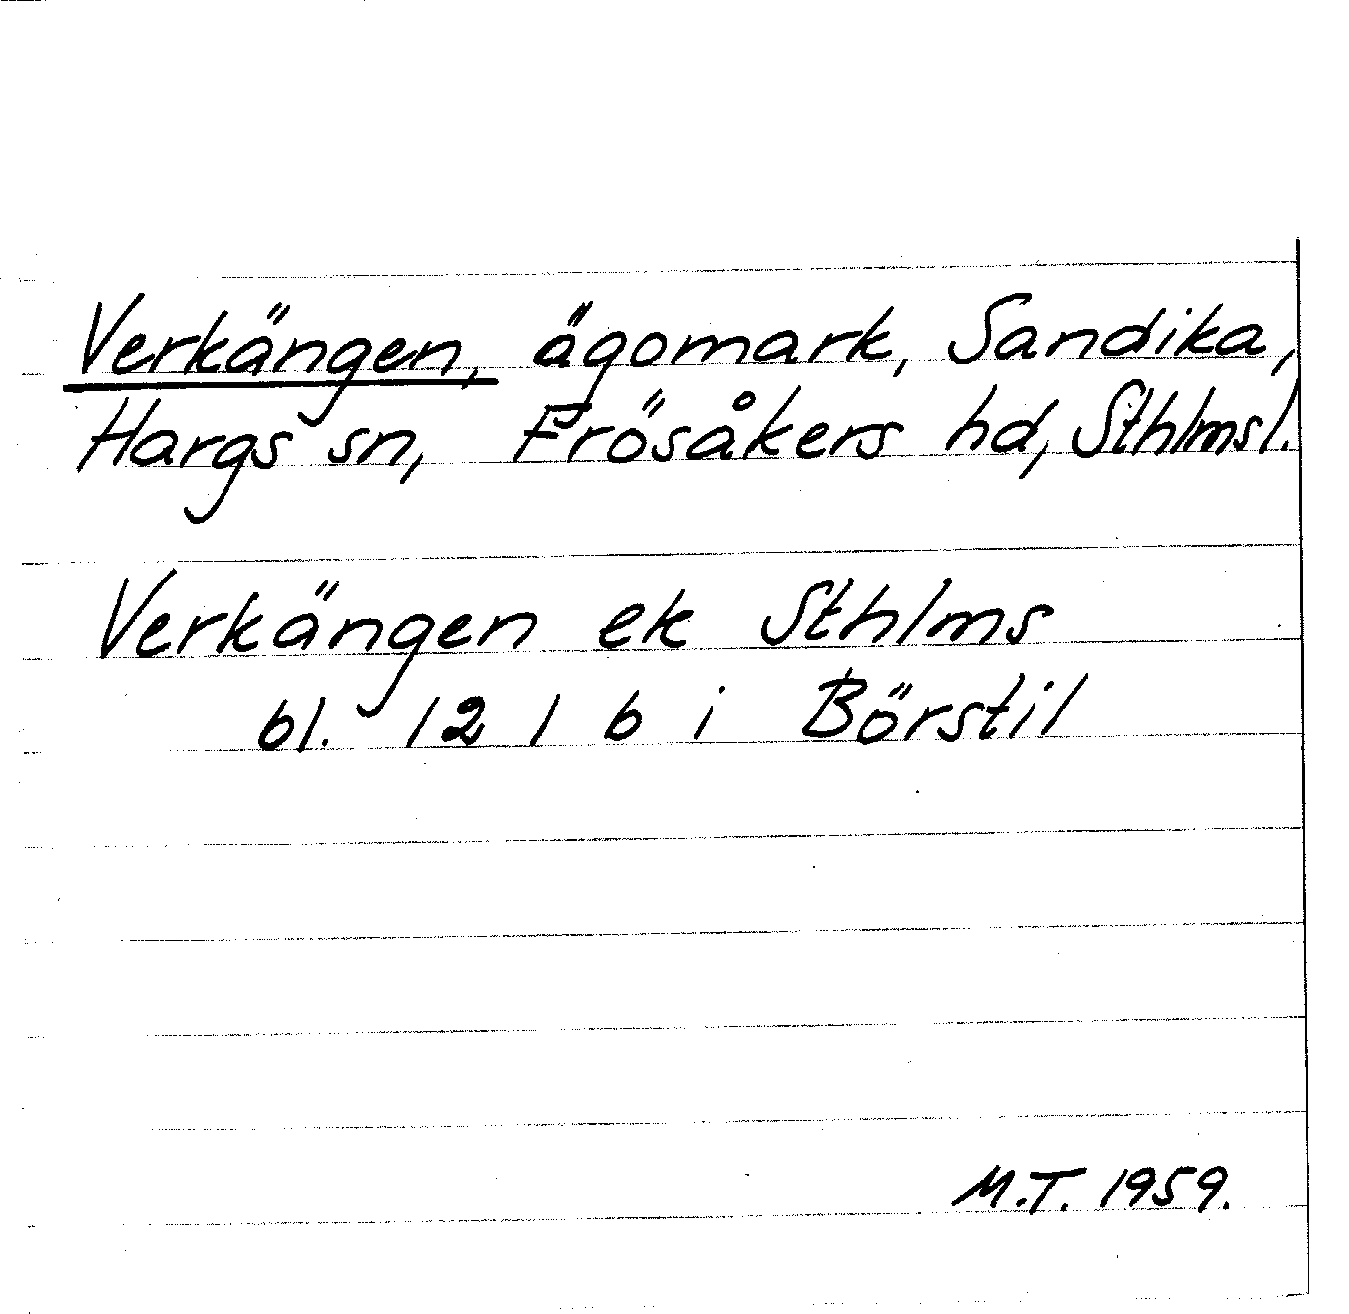 Verkängen, ägomark, Sandika,
Hargs sn, Frösåkers hd, Sthlmsl.
Verkängen ek Sthlms
bl. 12 1 b i Börstil
M.T. 1959.